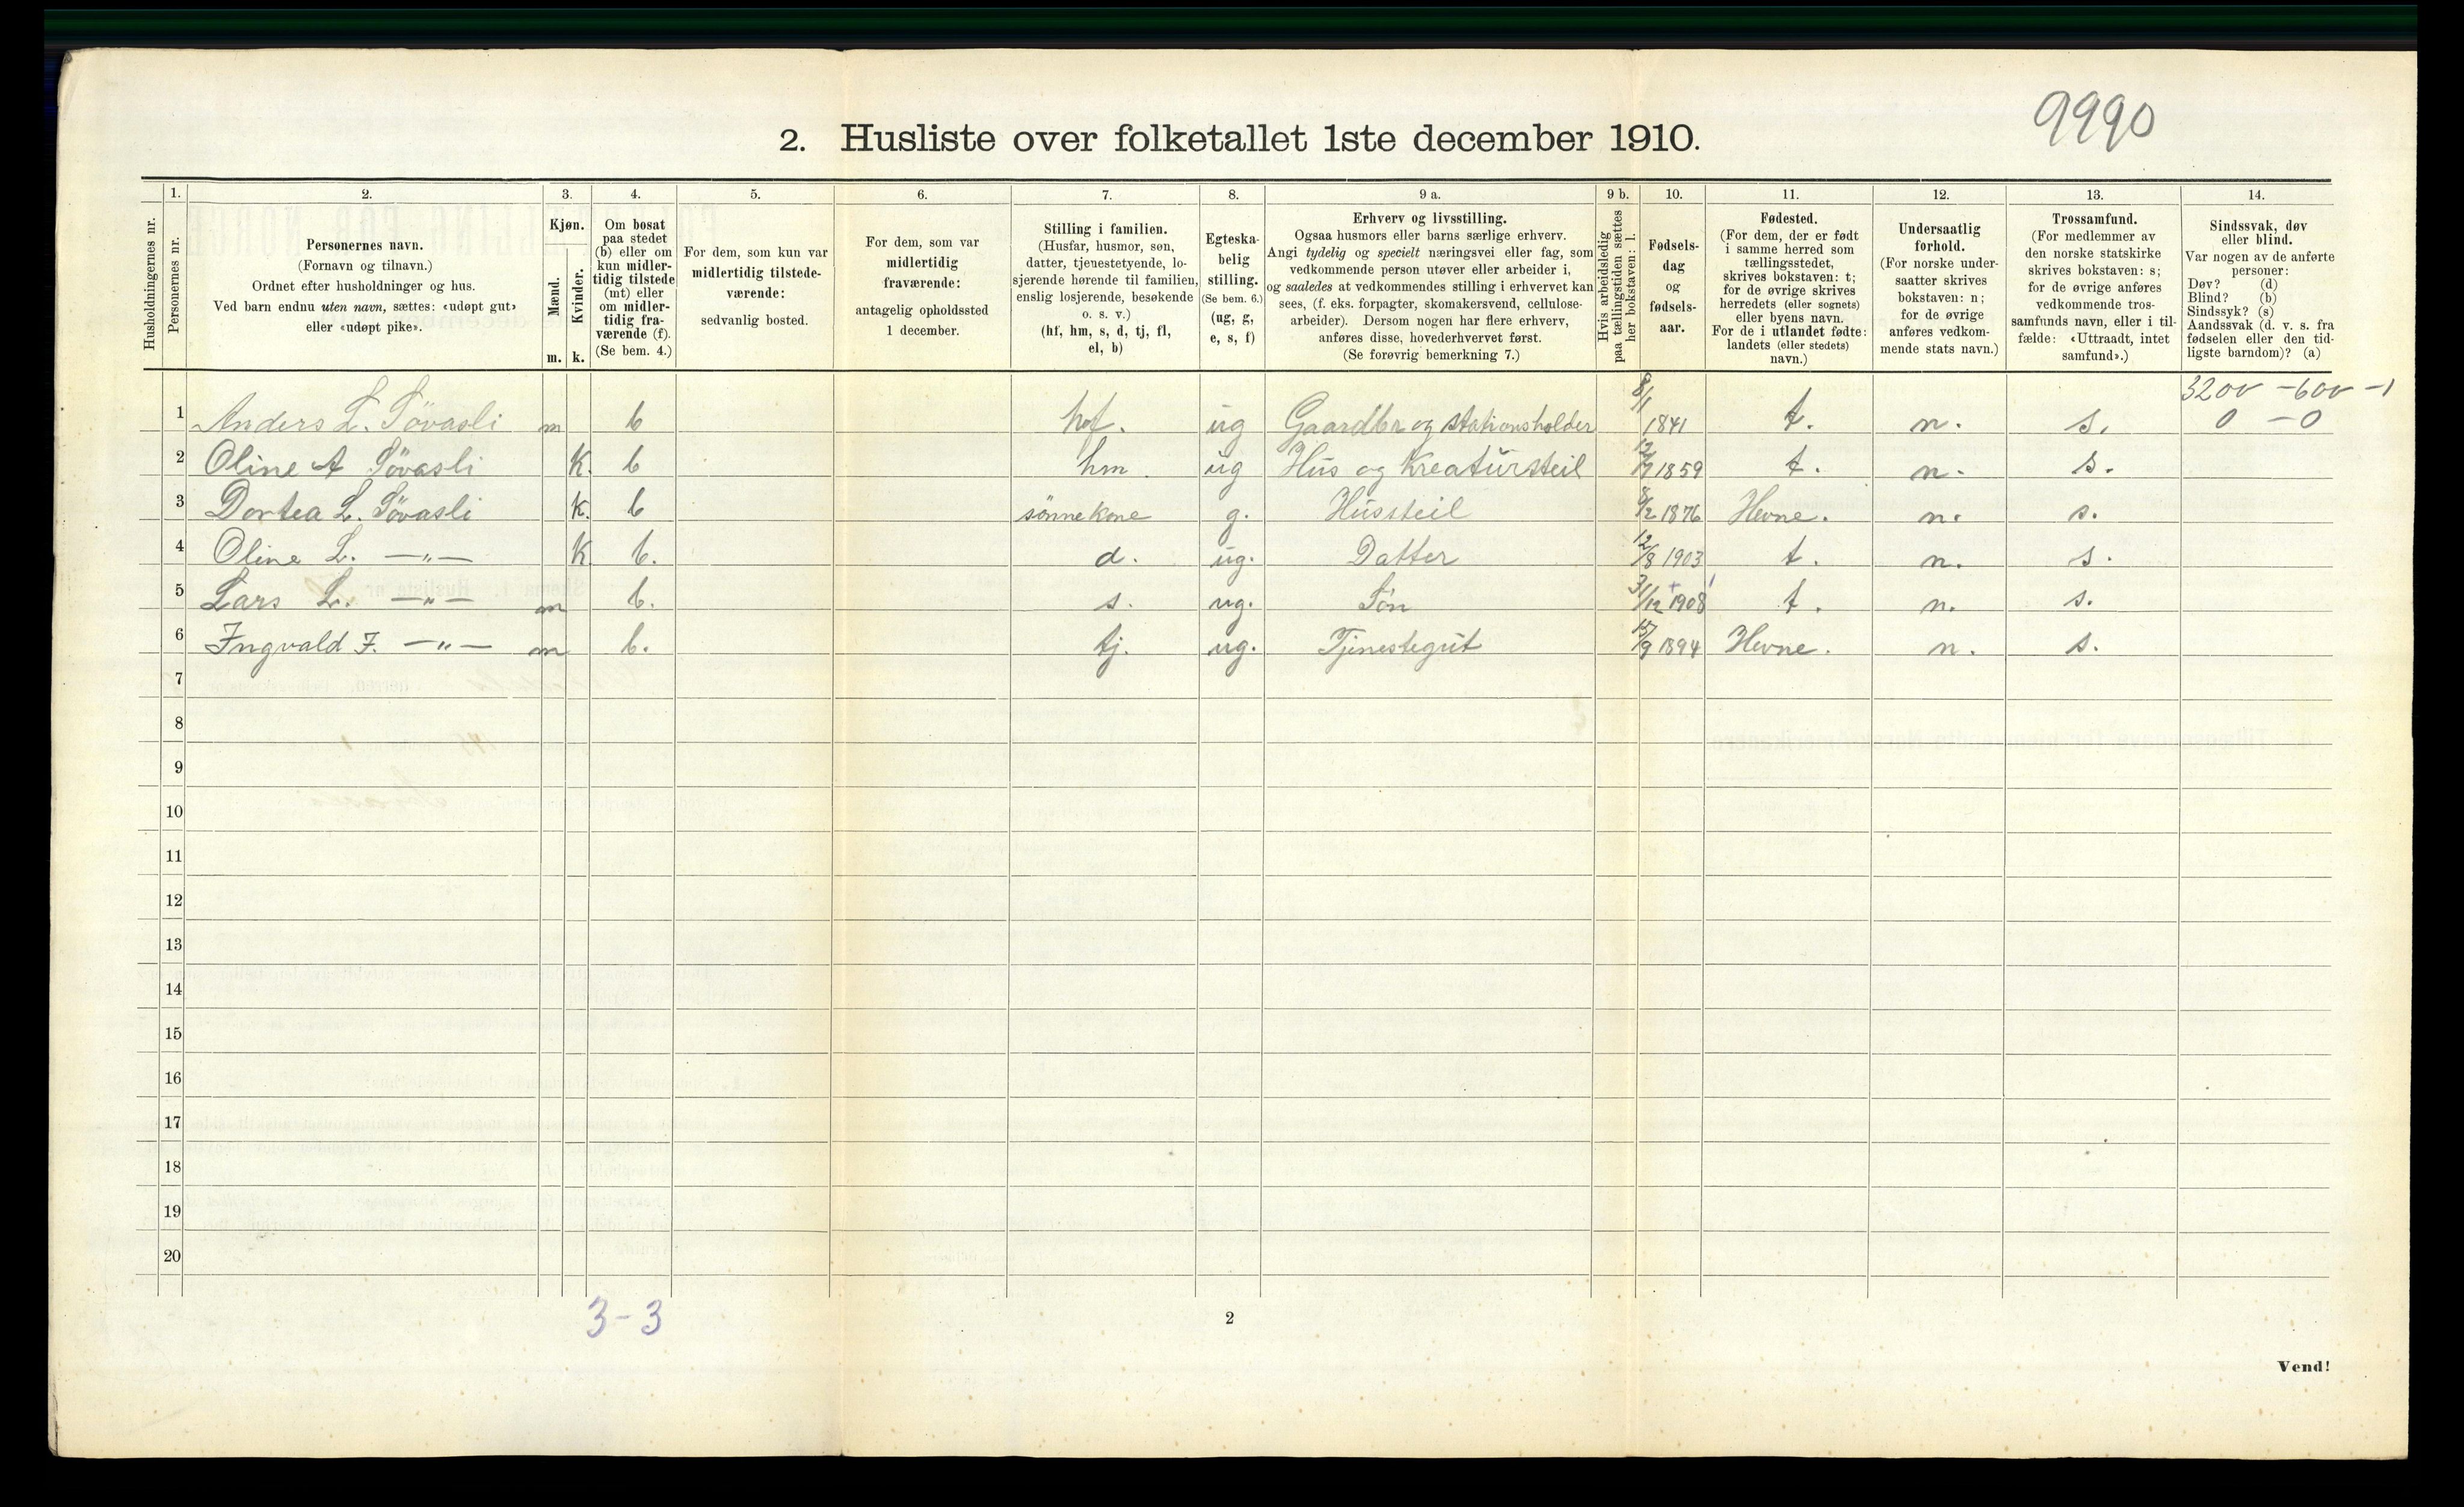 9990
2. Husliste over folketallet 1ste december 1910.
Husholdningernes nr.
1.
Personernes nr.
2.
Personernes navn.
(Fornavn og tilnavn.)
Ordnet efter husholdninger og hus.
Ved barn endnu uten navn, sættes: «udøpt gut»
eller «udøpt pike».
3.
Kjøn.
Mænd.
Kvinder.
m. k.
4.
Om bosat
paa stedet
(b) eller om
kun midler-
tidig tilstede
(mt) eller
om midler-
tidig fra-
værende (f).
(Se bem. 4.)
5.
For dem, som kun var
midlertidig tilstede-
værende:
sedvanlig bosted.
6.
For dem, som var
midlertidig
fraværende:
antagelig opholdssted
1 december.
7.
Stilling i familien.
(Husfar, husmor, søn,
datter, tjenestetyende, lo-
sjerende hørende til familien,
enslig losjerende, besøkende
o. s. v.)
(hf, hm, s, d, tj, fl,
el, b)
8.
Egteska-
belig
stilling.
(Se bem. 6.)
(ug, g,
e, s, f)
9 a.
Erhverv og livsstilling.
Ogsaa husmors eller barns særlige erhverv.
Angi tydelig og specielt næringsvei eller fag, som
vedkommende person utøver eller arbeider i,
og saaledes at vedkommendes stilling i erhvervet kan
sees, (f. eks. forpagter, skomakersvend, cellulose-
arbeider). Dersom nogen har flere erhverv,
anføres disse, hovederhvervet først.
(Se forøvrig bemerkning 7.)
9 b.
Hvis arbeidsledig
paa tællingstiden sættes
her bokstaven: l.
10.
Fødsels-
dag
og
fødsels-
aar.
11.
Fødested.
(For dem, der er født
i samme herred som
tællingsstedet,
skrives bokstaven: t;
for de øvrige skrives
herredets (eller sognets)
eller byens navn.
For de i utlandet fødte:
landets (eller stedets)
navn.)
12.
Undersaatlig
forhold.
(For norske under-
saatter skrives
bokstaven: n;
for de øvrige
anføres vedkom-
mende stats navn.)
13.
Trossamfund.
(For medlemmer av
den norske statskirke
skrives bokstaven: s;
for de øvrige anføres
vedkommende tros-
samfunds navn, eller i til-
fælde: «Uttraadt, intet
samfund».)
14.
Sindssvak, døv
eller blind.
Var nogen av de anførte
personer:
Døv? (d)
Blind? (b)
Sindssyk? (s)
Aandssvak (d. v. s. fra
fødselen eller den tid-
ligste barndom)? (a)
1 Anders L. Søvasli m b hf. ug Gaardbr og stationsholder 8/1 1841 t. n. s. 0 - 0
2 Oline A Søvasli K. b hm. ug Hus og Kreatursteil 1859 t. n. s.
3 Dortea L. Søvasli K. b sønnekone g. Hussteil 8/2 1876 Hevne. n. s.
4 Oline L. —"— K b. d. ug. Datter 12/8 1903 t. n. s.
5 Lars L. —"— m b. s. ug. Søn 31/12 1908 t. n. s.
6 Ingvald I. —"— m b. tj. ug. Tjenestegut 1894 Hevne. n. s.
7
8
9
10
11
12
13
14
15
16
17
18
19
20
3-3
2
Vend!